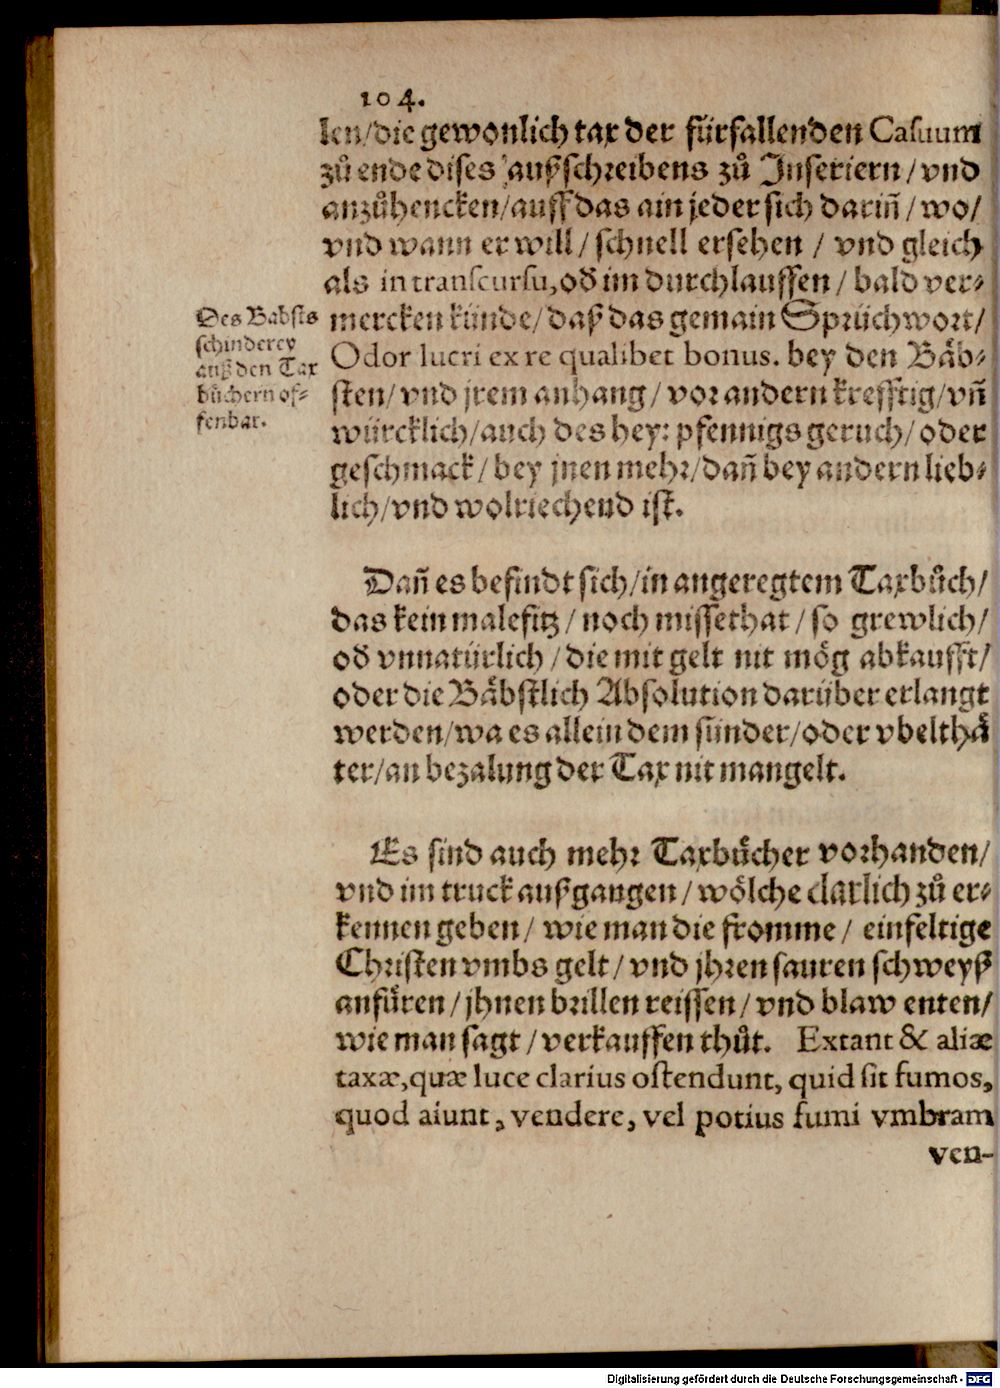 104.
len/die gewonlich tax der fürfallenden Casuum
zů ende dises außschreibens zů Inseriern/vnd
anzůhencken/auff das ain jeder sich dariñ/wo/
vnd wann er will/schnell ersehen/vnd gleich
als in transcursu, oď im durchlauffen/bald ver-
mercken künde/daß das gemain Sprüchwort/
Odor lucri ex re qualibet bonus. bey den Bäb-
sten/vnd jrem anhang/vor andern krefftig/vñ
würcklich/auch des hey: pfennigs geruch/oder
geschmack/bey jnen mehr/dañ bey andern lieb-
lich/vnd wolriechend ist.
Des Babsts
schinderey
auß den Tax
büchern of-
fenbar.
Dañ es befindt sich/in angeregtem Taxbůch/
das kein malefitz/noch missethat/so grewlich/
oď vnnatürlich/die mit gelt nit mög abkaufft/
oder die Bäbstlich Absolution darüber erlangt
werden/wa es allein dem sünder/oder vbelthä
ter/an bezalung der Tax nit mangelt.
Es sind auch mehr Taxbücher vorhanden/
vnd im truck außgangen/wölche clarlich zů er-
kennen geben/wie man die fromme/einfeltige
Christen vmbs gelt/vnd jhren sauren schweyß
anfüren/jhnen brillen reissen/vnd blaw enten/
wie man sagt/verkauffen thůt. Extant & aliæ
taxæ, quæ luce clarius ostendunt, quid sit fumos,
quod aiunt, vendere, vel potius fumi vmbram
ven-
Digitalisierung gefördert durch die Deutsche Forschungsgemeinschaft - DFG